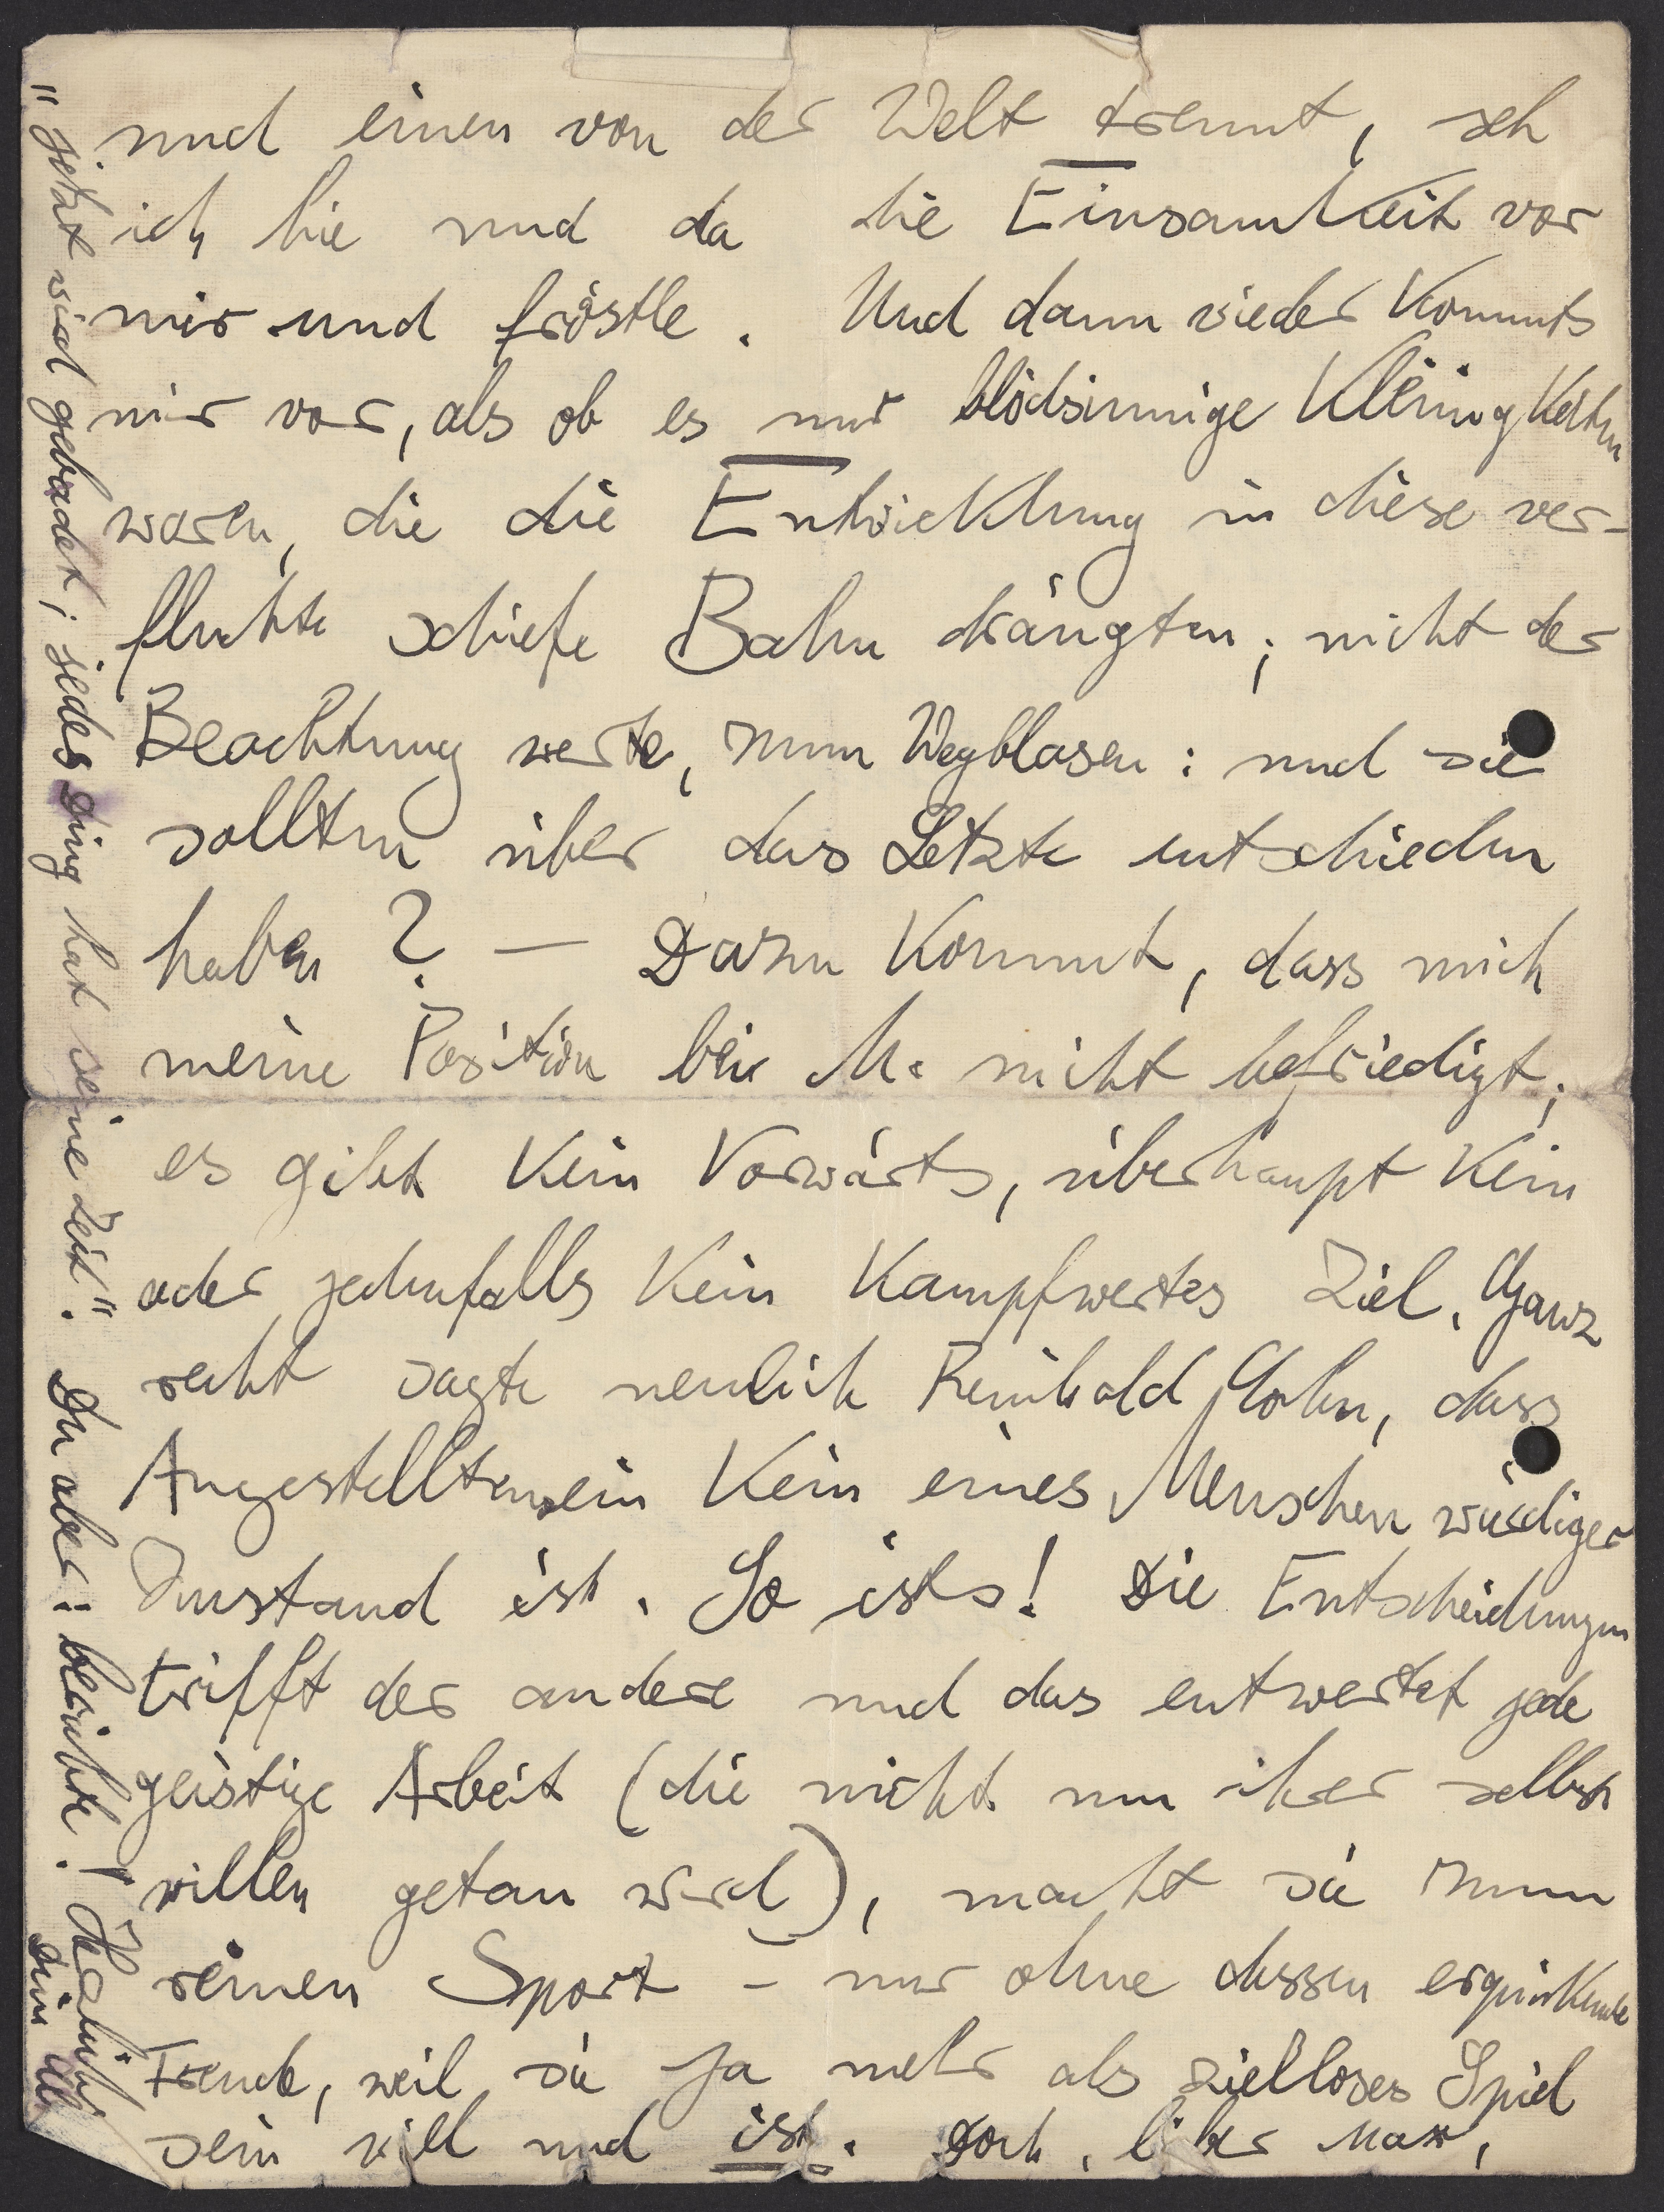 und einen von der Welt trennt, seh
ich hie und da die Einsamkeit vor
mir und fröstle. Und dann wieder kommts
mir vor, als ob es nur blödsinnige Kleinigkeiten
waren, die die Entwicklung in diese ver-
fluchte schiefe Bahn drängten; nicht der
Beachtung werte, zum Wegblasen: und sie
sollten über das Letzte entschieden
haben? — Dazu kommt, dass mich
meine Position bei M. nicht befriedigt;
es gibt kein Vorwärts, überhaupt kein
oder jedenfalls kein kampfwertes Ziel. Ganz
recht sagte neulich Reinhold Cohn, dass
Angestelltensein kein eines Menschen würdiger
Zustand ist. So ists! Die Entscheidungen
trifft der andere und das entwertet jede
geistige Arbeit (die nicht um ihrer selbst
willen getan wird), macht sie zum
reinen Sport – nur ohne dessen erquickende
Freude, weil sie ja mehr als zielloses Spiel
sein will und ist. Doch, lieber Max,
"jetzt wird gebadet; jedes Ding hat seine Zeit". Du aber: berichte! Herzlichst
Dein